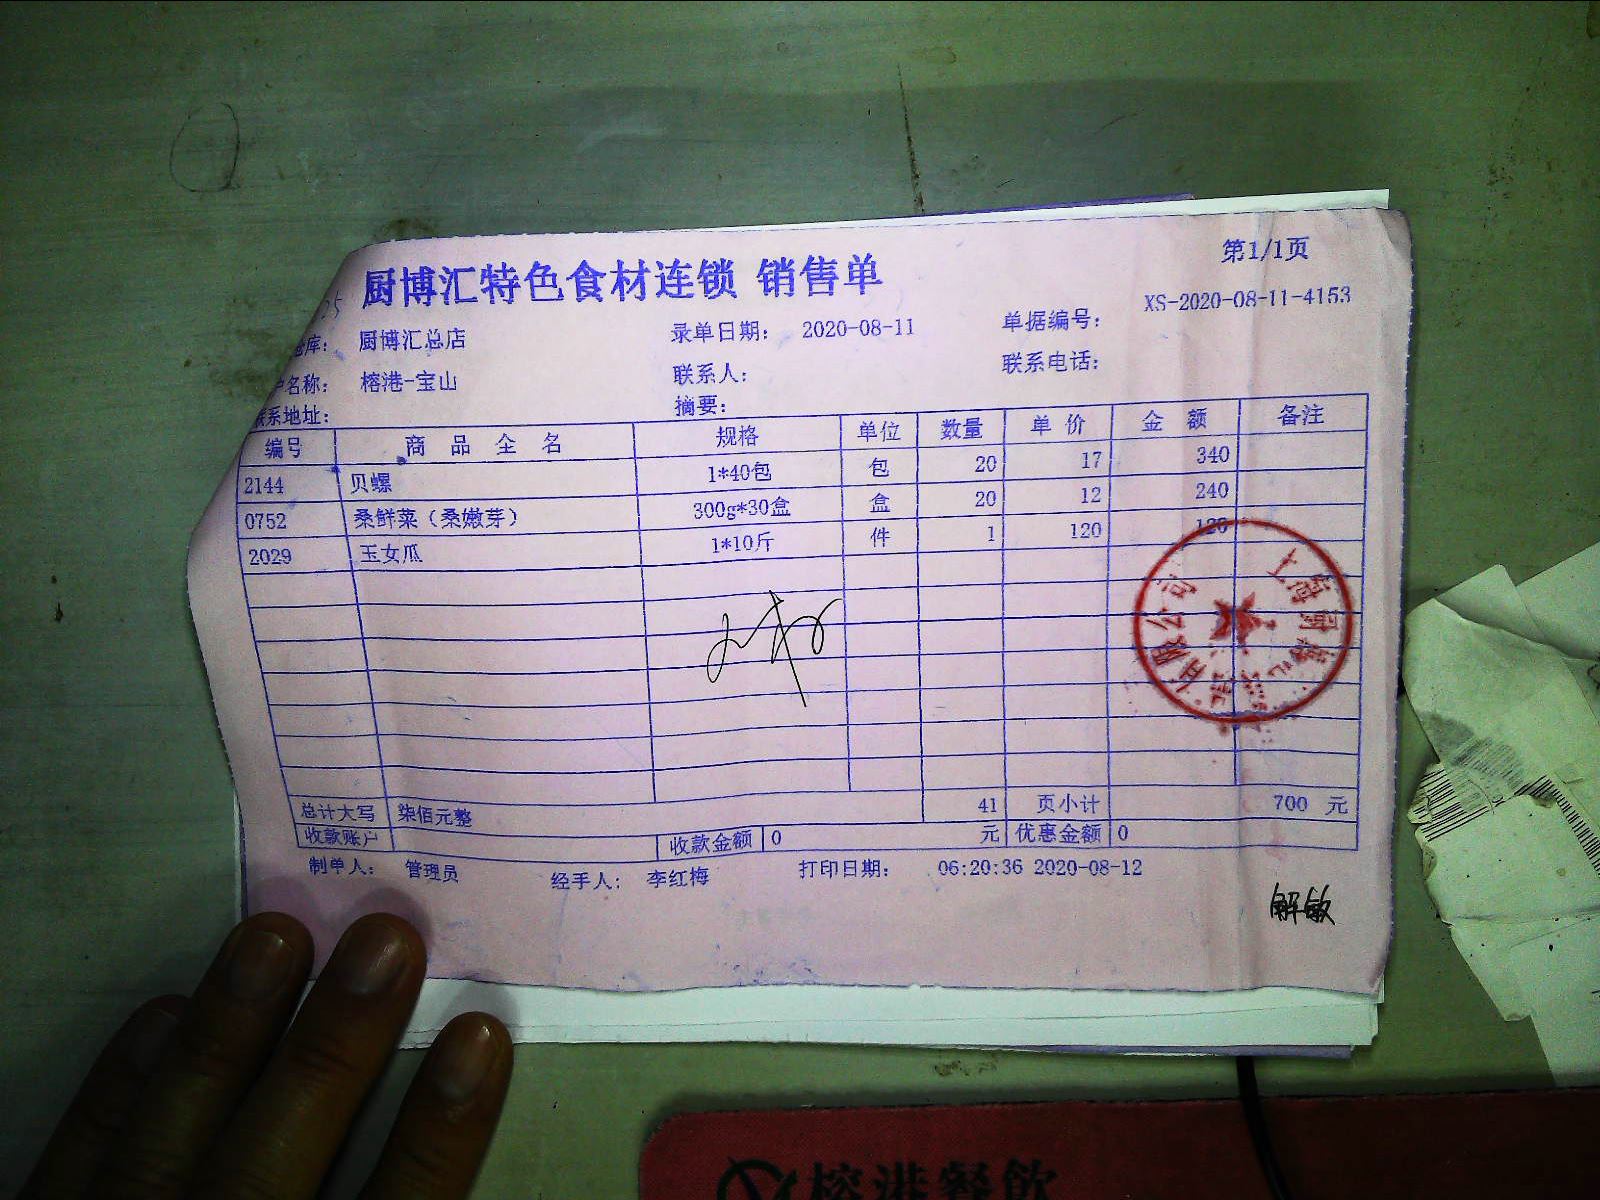 厨博汇特色食材连锁 销售单
第1/1页
库: 厨博汇总店 录单日期: 2020-08-11 单据编号: XS-2020-08-11-4153
户名称: 榕港-宝山 联系人: 联系电话:
联系地址: 摘要:
编号 商品全名 规格 单位 数量 单价 金额 备注
2144 贝螺 1*40包 包 20 17 340
0752 桑鲜菜（桑嫩芽） 300g*30盒 盒 20 12 240
2029 玉女瓜 1*10斤 件 1 120 120
总计大写 柒佰元整 41 页小计 700 元
收款账户 收款金额 0 元 优惠金额 0
制单人: 管理员 经手人: 李红梅 打印日期: 06:20:36 2020-08-12
解敏
榕港餐飲